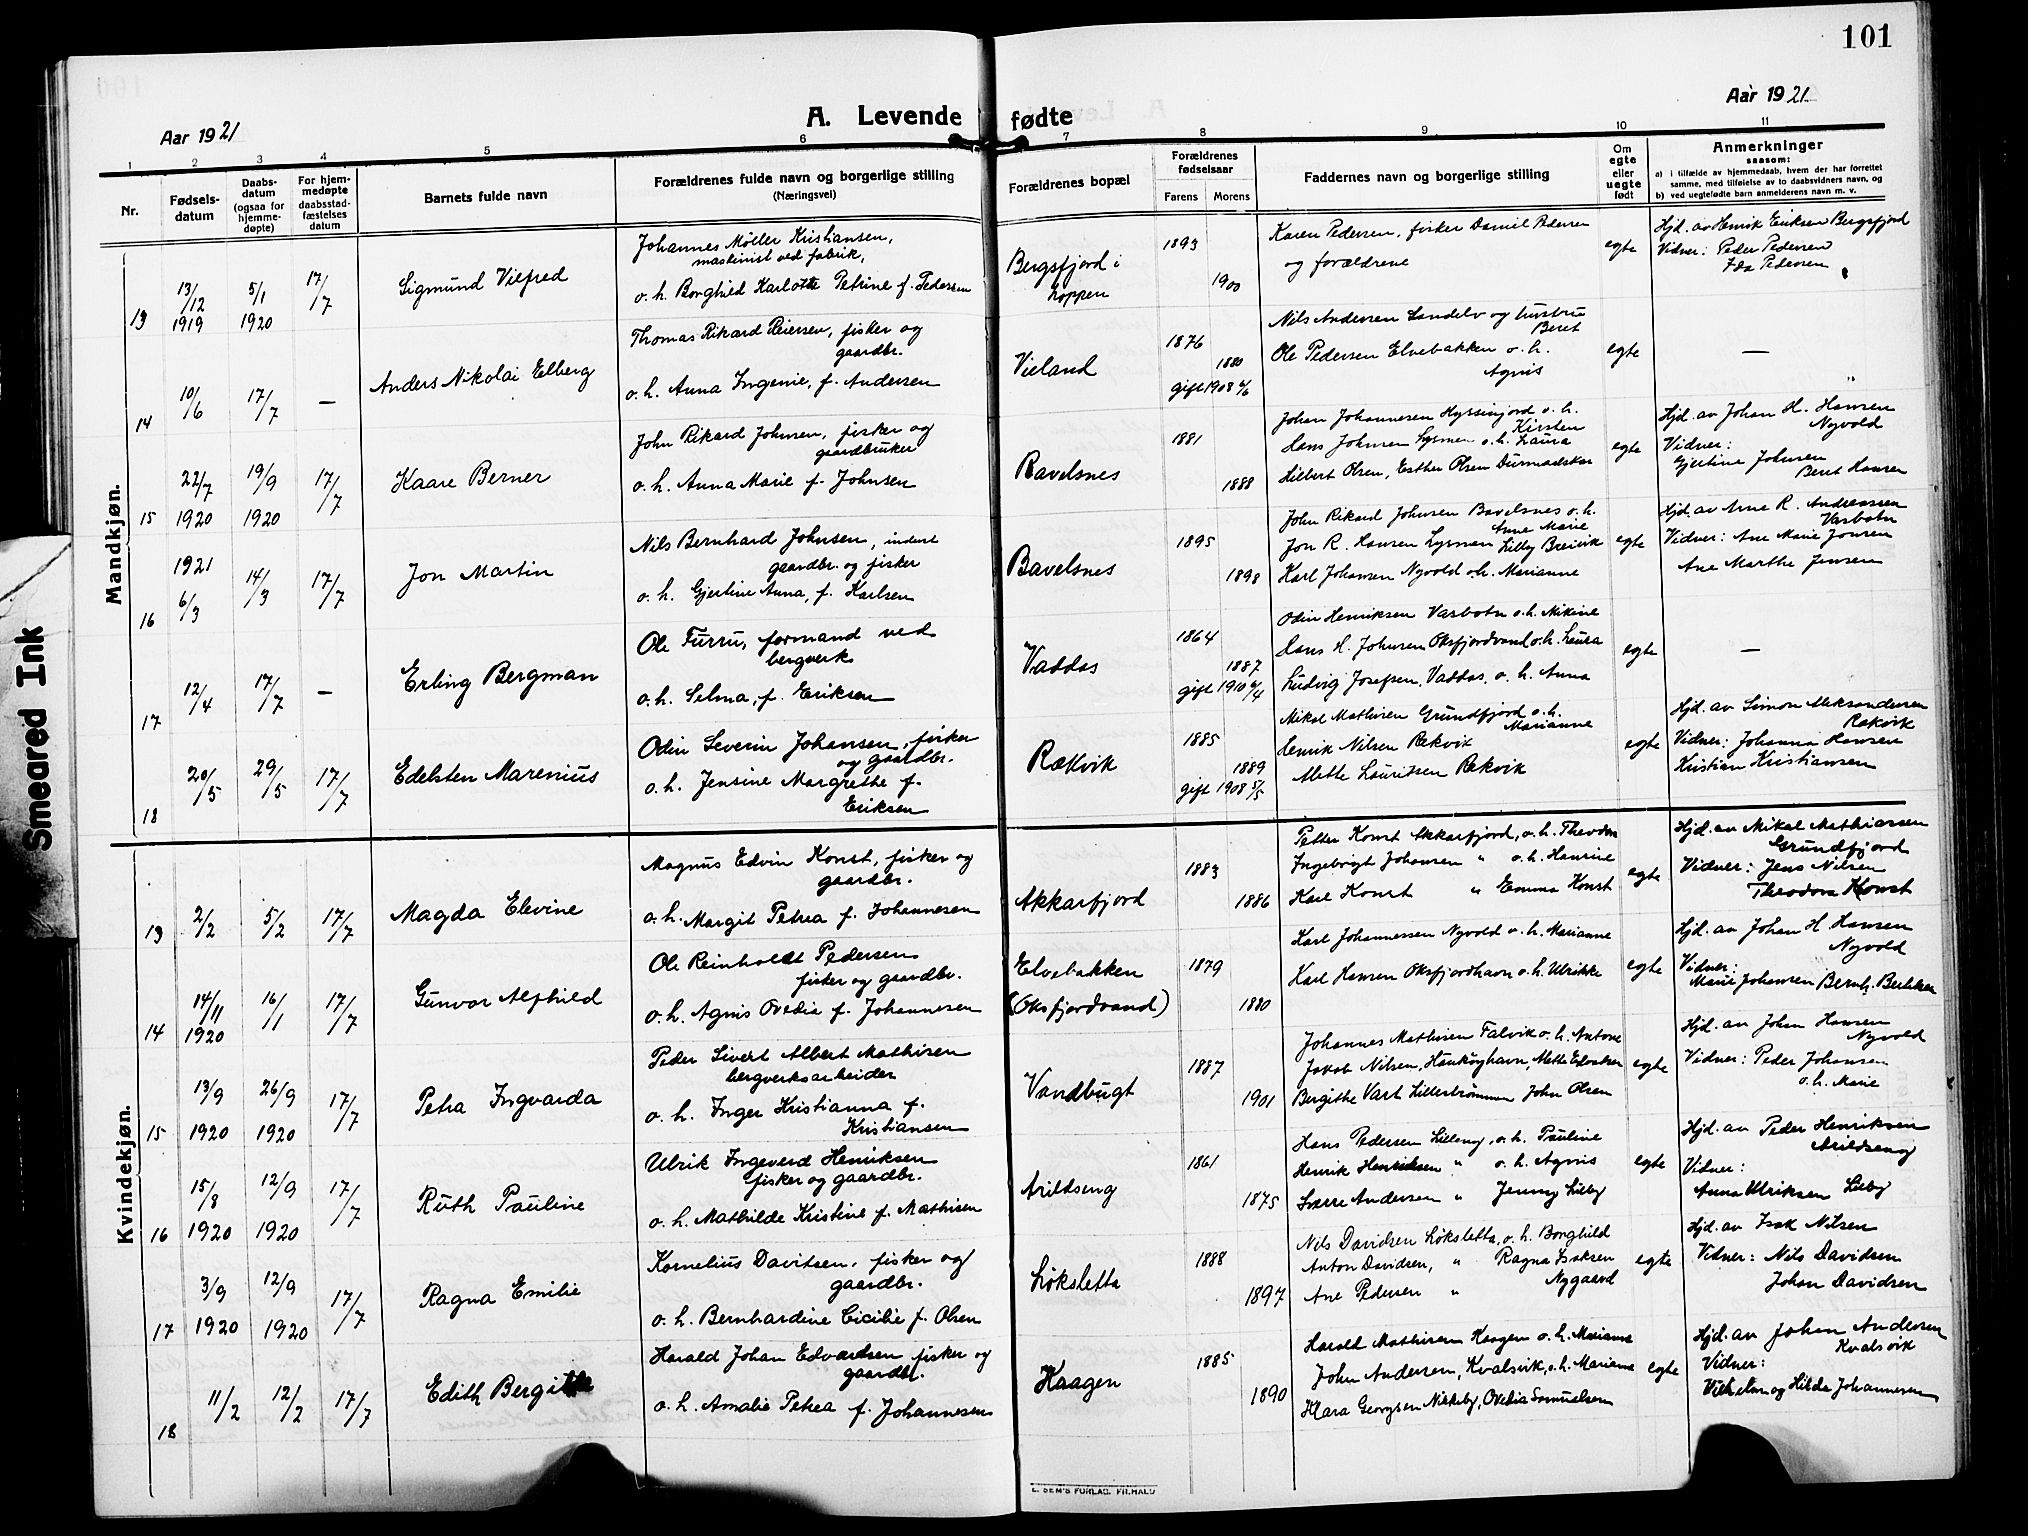 101
Aar 1921
A. Levende fødte
Aar 1921.
1 2 3 4 5 6 7 8 9 10 11
Nr.
Fødsels-
datum
Daabs-
datum
(ogsaa for
hjemme-
døpte)
For hjem-
medøpte
daabsstad-
fæstelses
datum
Barnets fulde navn
Forældrenes fulde navn og borgerlige stilling
(Næringsvei)
Forældrenes bopæl
Forældrenes
fødselsaar
Farens Morens
Faddernes navn og borgerlige stilling
Om
egte
eller
uegte
født
Anmerkninger
saasom:
a) i tilfælde av hjemmedaab, hvem der har forrettet
samme, med tilføielse av to daabsvidners navn, og
b) ved uegtefødte barn anmelderens navn m. v.
Mandkjøn.
13 13/12 1919 5/1 1920 17/7 Sigmund Vilfred
Johannes Møller Kristiansen,
maskinist ved fabrik,
o. h. Borghild Karlotte Petrine f. Pedersen
Bergsfjord i
Loppen
1893
1900
Karen Pedersen, fisker Daniel Pedersen
og forældrene
egte
Hjd. av Henrik Eriksen Bergsfjord
Vidner: Peder Pedersen
Ida Pedersen
14 10/6 17/7 — Anders Nikolai Elberg
Thomas Rikard Peiersen, fisker og
gaardbr.
o. h. Anna Ingenie, f. Andersen
Vieland
1876
1880
gift 1908 6/6
Nils Andersen Sandelv og hustru
Beret
Ole Pedersen Elvebakken o. h.
Agnis
egte
—
15 22/7 1920 19/9 1920 17/7 Kaare Berner
John Rikard Johnsen, fisker og
gaardbruker
o. h. Anna Marie f. Johnsen
Bavelsnes
1881
1888
Johan Johannesen Hyssinjord o. h.
Kirsten
Hans Johnsen Lysmen o. h. Laura
Hilbert Olsen, Esther Olsen Durmadskar
egte
Hjd. av Johan H. Hansen
Nyvold
Vidner:
Gjertine Johnsen
Beret Hansen
16 1921 6/3 14/3 17/7 Jon Martin
Nils Bernhard Johnsen, inderst
gaardbr. og fisker
o. h. Gjertine Anna, f. Karlsen
Bavelsnes
1895
1898
John Rikard Johnsen Bavelsnes o. h.
Anna Marie
Jon R. Hansen Lysmen Lilly Breivik
Karl Johansen Nyvold o.h. Marianne
egte
Hjd. av Arne R. Andreassen
Vasbotn
Vidner: Ane Marie Jonsen
Ane Marthe Jensen
17 12/4 17/7 — Erling Bergman
Ole Furru, formand ved
bergverk
o. h. Selma, f. Eriksen
Vaddas
1864
1887
gift 1910 6/4
Odin Henriksen Vasbotn o.h. Nikine
Hans H. Johnsen Oksfjordvand o.h. Laura
Ludvig Josefsen, Vaddas, o. h. Anna
egte
—
18 20/5 29/5 17/7 Edelsten Marenius
Odin Severin Johansen, fisker
og gaardbr.
o. h. Jensine Margrethe f.
Eriksen
Rækvik
1885
1889
gift 1908 5/5
Nikol Mathisen Grundfjord o. h.
Marianne
Henrik Nilsen Rekvik
Mette Lauritsen Rekvik
egte
Hjd. av Simon Aleksandersen
Rækvik
Vidner: Johanna Hansen
Kristian Kristiansen
Kvindekjøn.
13 2/2 5/2 17/7 Magda Elevine
Magnus Edvin Konst, fisker og
gaardbr.
o. h. Margit Petrea f. Johannesen
Akkarfjord
1883
1886
Petter Konst Akkarfjord, o. h. Theodora
Ingebrigt Johansen " o. h. Hansine
Karl Konst " Emma Konst
egte
Hjd. av Mikal Mathiassen
Grundfjord
Vidner: Jens Nilsen
Theodora Konst
14 14/11 1920 16/1 17/7 Gunvor Alfhild
Ole Reinholdt Pedersen
fisker og gaardbr.
o. h. Agnis Ovedia f. Johannesen
Elvebakken
(Oksfjordvand)
1879
1880
Karl Johannessen Nyvold o. h. Marianne
Karl Hansen Oksfjordhavn o. h. Ulrikke
egte
Hjd. av Johan H Hansen
Nyvold
Vidner:
Marie Johansen Bernh.
15 13/9 1920 26/9 1920 17/7 Petra Ingvarda
Peder Sivert Albert Mathisen
bergverksarbeider
o. h. Inger Kristianna f.
Kristiansen
Vandbugt
1887
1901
Johannes Mathisen Falvik o. h. Antone
Jakob Nilsen, Haukøyhavn, Mette
Bergithe Vart Lillestrømmen John Olsen
egte
Hjd. av Johan Hansen
Nyvold
Vidner: Peder Johansen
o. h. Marie
16 15/8 1920 12/9 1920 17/7 Ruth Pauline
Ulrik Ingeverd Henriksen
fisker og gaardbr.
o. h. Mathilde Kristine f. Mathisen
Arildseng
1861
1875
Hans Pedersen Lilleng, o. h. Pauline
Henrik Henriksen " o. h. Agnis
Sverre Andersen " Jenny Lilleby
egte
Hjd. av Peder Henriksen
Arildseng
Vidner:
Anna Ulriksen Lilleby
17 3/9 1920 12/9 1920 17/7 Ragna Emilie
Kornelius Davitsen, fisker og
gaardbr.
o. h. Bernhardine Cicilie f. Olsen
Løksletta
1888
1897
Nils Davidsen Løksletta, o. h. Borghild
Anton Davidsen, " Ragna Isaksen
Nygaard
Ane Pedersen "
egte
Hjd. av Isak Nilsen
Vidner: Nils Davidsen
Johan Davidsen
18 11/2 12/2 17/7 Edith Bergitte
Harald Johan Edvardsen fisker og
gaardbr.
o. h. Amalie Petrea f. Johannesen
Kaagen
1885
1890
Harald Mathisen Kaagen o. h. Mariane
John Andersen, Kvalsvik, o. h. Mariane
Klara Georgsen Nikkeby, Ovedia Samuelsen
egte
Hjd. av Johan Andersen
Kvalsvik
Vidner:
Vilhelm og Hilda Johannesen
E. SEM'S FORLAG. FR.HALD
Smeared Ink